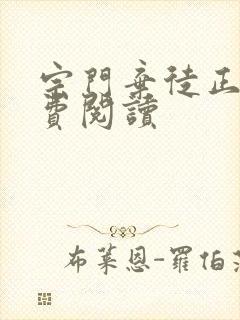 宗門棄徒正
費閱讀
布萊恩-羅伯